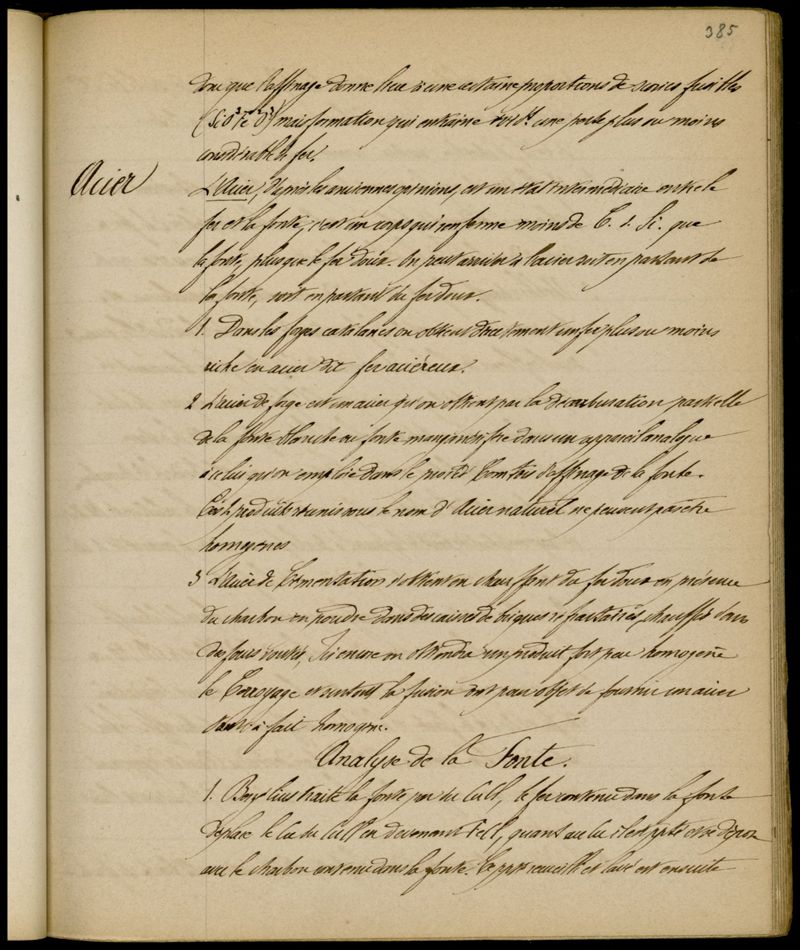 385
donc que l'affinage donne lieu à une certaine proportions de scories fusibles
(SiO³ Fe²O³) mais formation qui entraine une perte plus ou moins
considérable de fer.
Acier
L'Acier, d'après les anciennes opinions, est un état intermédiaire entre le
fer et la fonte, c'est un corps qui renferme moins de C. & Si. que
la fonte, plus que le fer doux. On peut arriver à l'acier soit en partant de
la fonte, soit en partant du fer doux.
1. Dans les forges catalanes on obtient directement un fer plus ou moins
riche en acier dit fer aciéreux.
2 L'acier de forge est un acier qu'on obtient par la décarburation partielle
de la fonte blanche ou fonte manganésifère dans un appareil analogue
à celui qu'on emploie dans le procédé Comtois d'affinage de la fonte.
Ces produits réunis sous le nom d'Acier naturel ne peuvent pas être
homogènes
3 L'acier de Cémentation s'obtient en chauffant du fer doux en présence
du charbon en poudre dans des caisses de briques réfractaires, chauffées dans
des fours voutés, Ici encore on obtiendra un produit fort peu homogène
le Corroyage et surtout la fusion ont pour objet de fournir un acier
tout à fait homogène.
Analyse de la Fonte.
1. Berzélius traite la fonte par du CuCl, le fer contenu dans la fonte
déplace le Cu du CuCl en devenant FeCl, quant au Cu il est ppté et se dépose
avec le charbon contenu dans la fonte. Ce ppté recueilli et lavé est ensuite